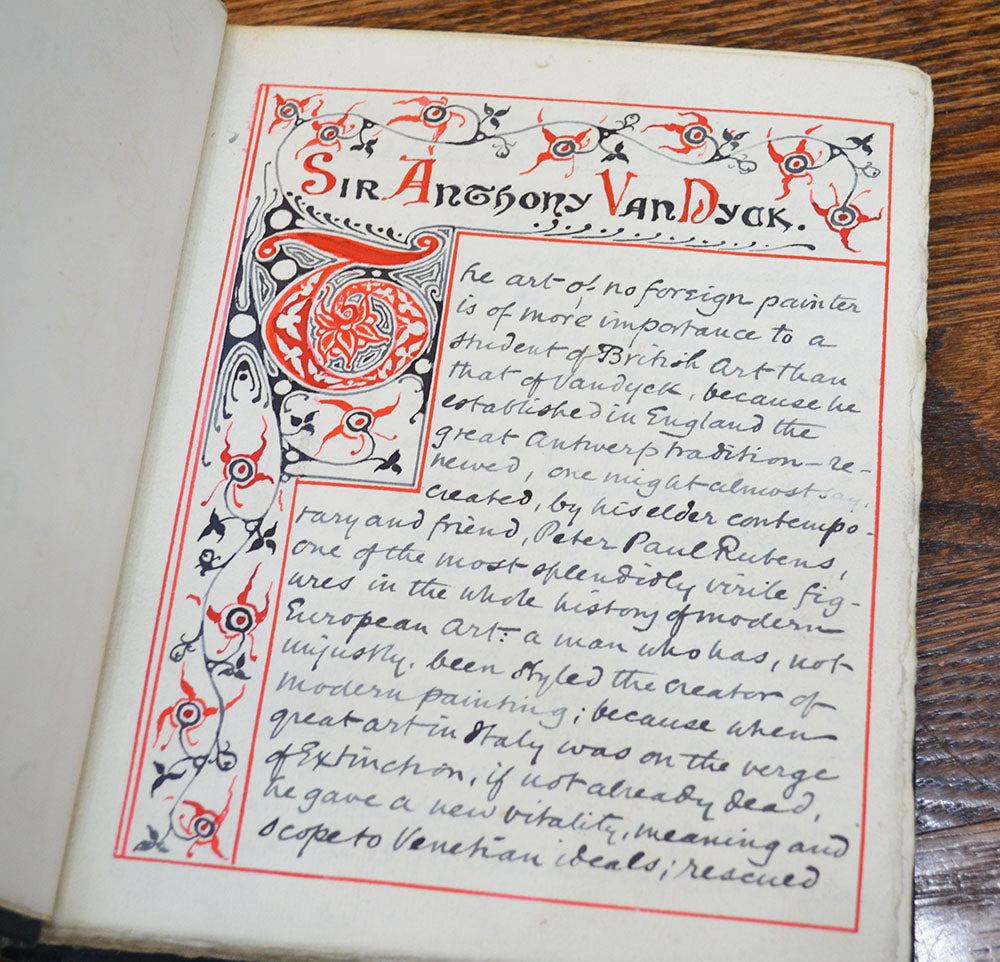 Sir Anthony VanDyck.
The art of no foreign painter
is of more importance to a
student of British Art than
that of Vandyck, because he
established in England the
great Antwerp tradition – re-
newed, one might almost say,
created, by his elder contempo-
rary and friend, Peter Paul Rubens,
one of the most splendidly virile fig-
ures in the whole history of modern
European Art: a man who has, not
unjustly, been styled the creator of
modern painting; because when
great art in Italy was on the verge
of Extinction, if not already dead,
he gave a new vitality, meaning and
scope to Venetian ideals; rescued